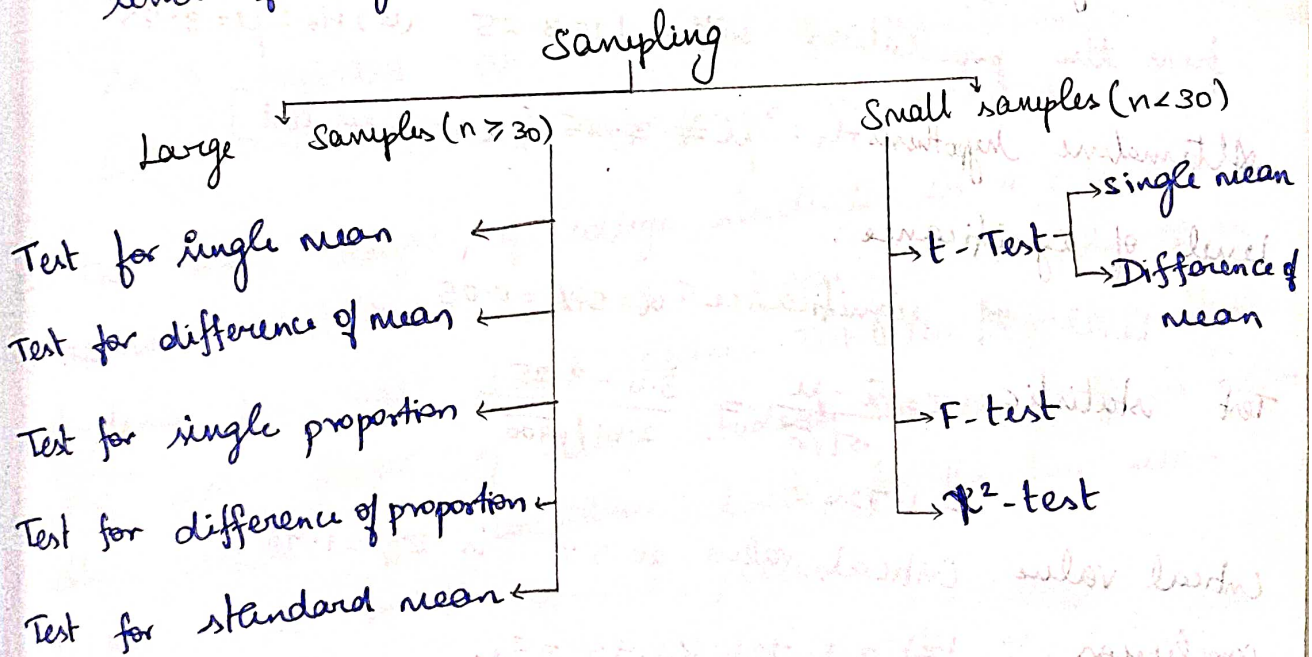 Sampling
Large Samples (n ≥ 30)
Small samples (n < 30)
Test for single mean
Test for difference of mean
Test for single proportion
Test for difference of proportion
Test for standard mean
t - Test
single mean
Difference of
mean
F - test
χ² - test